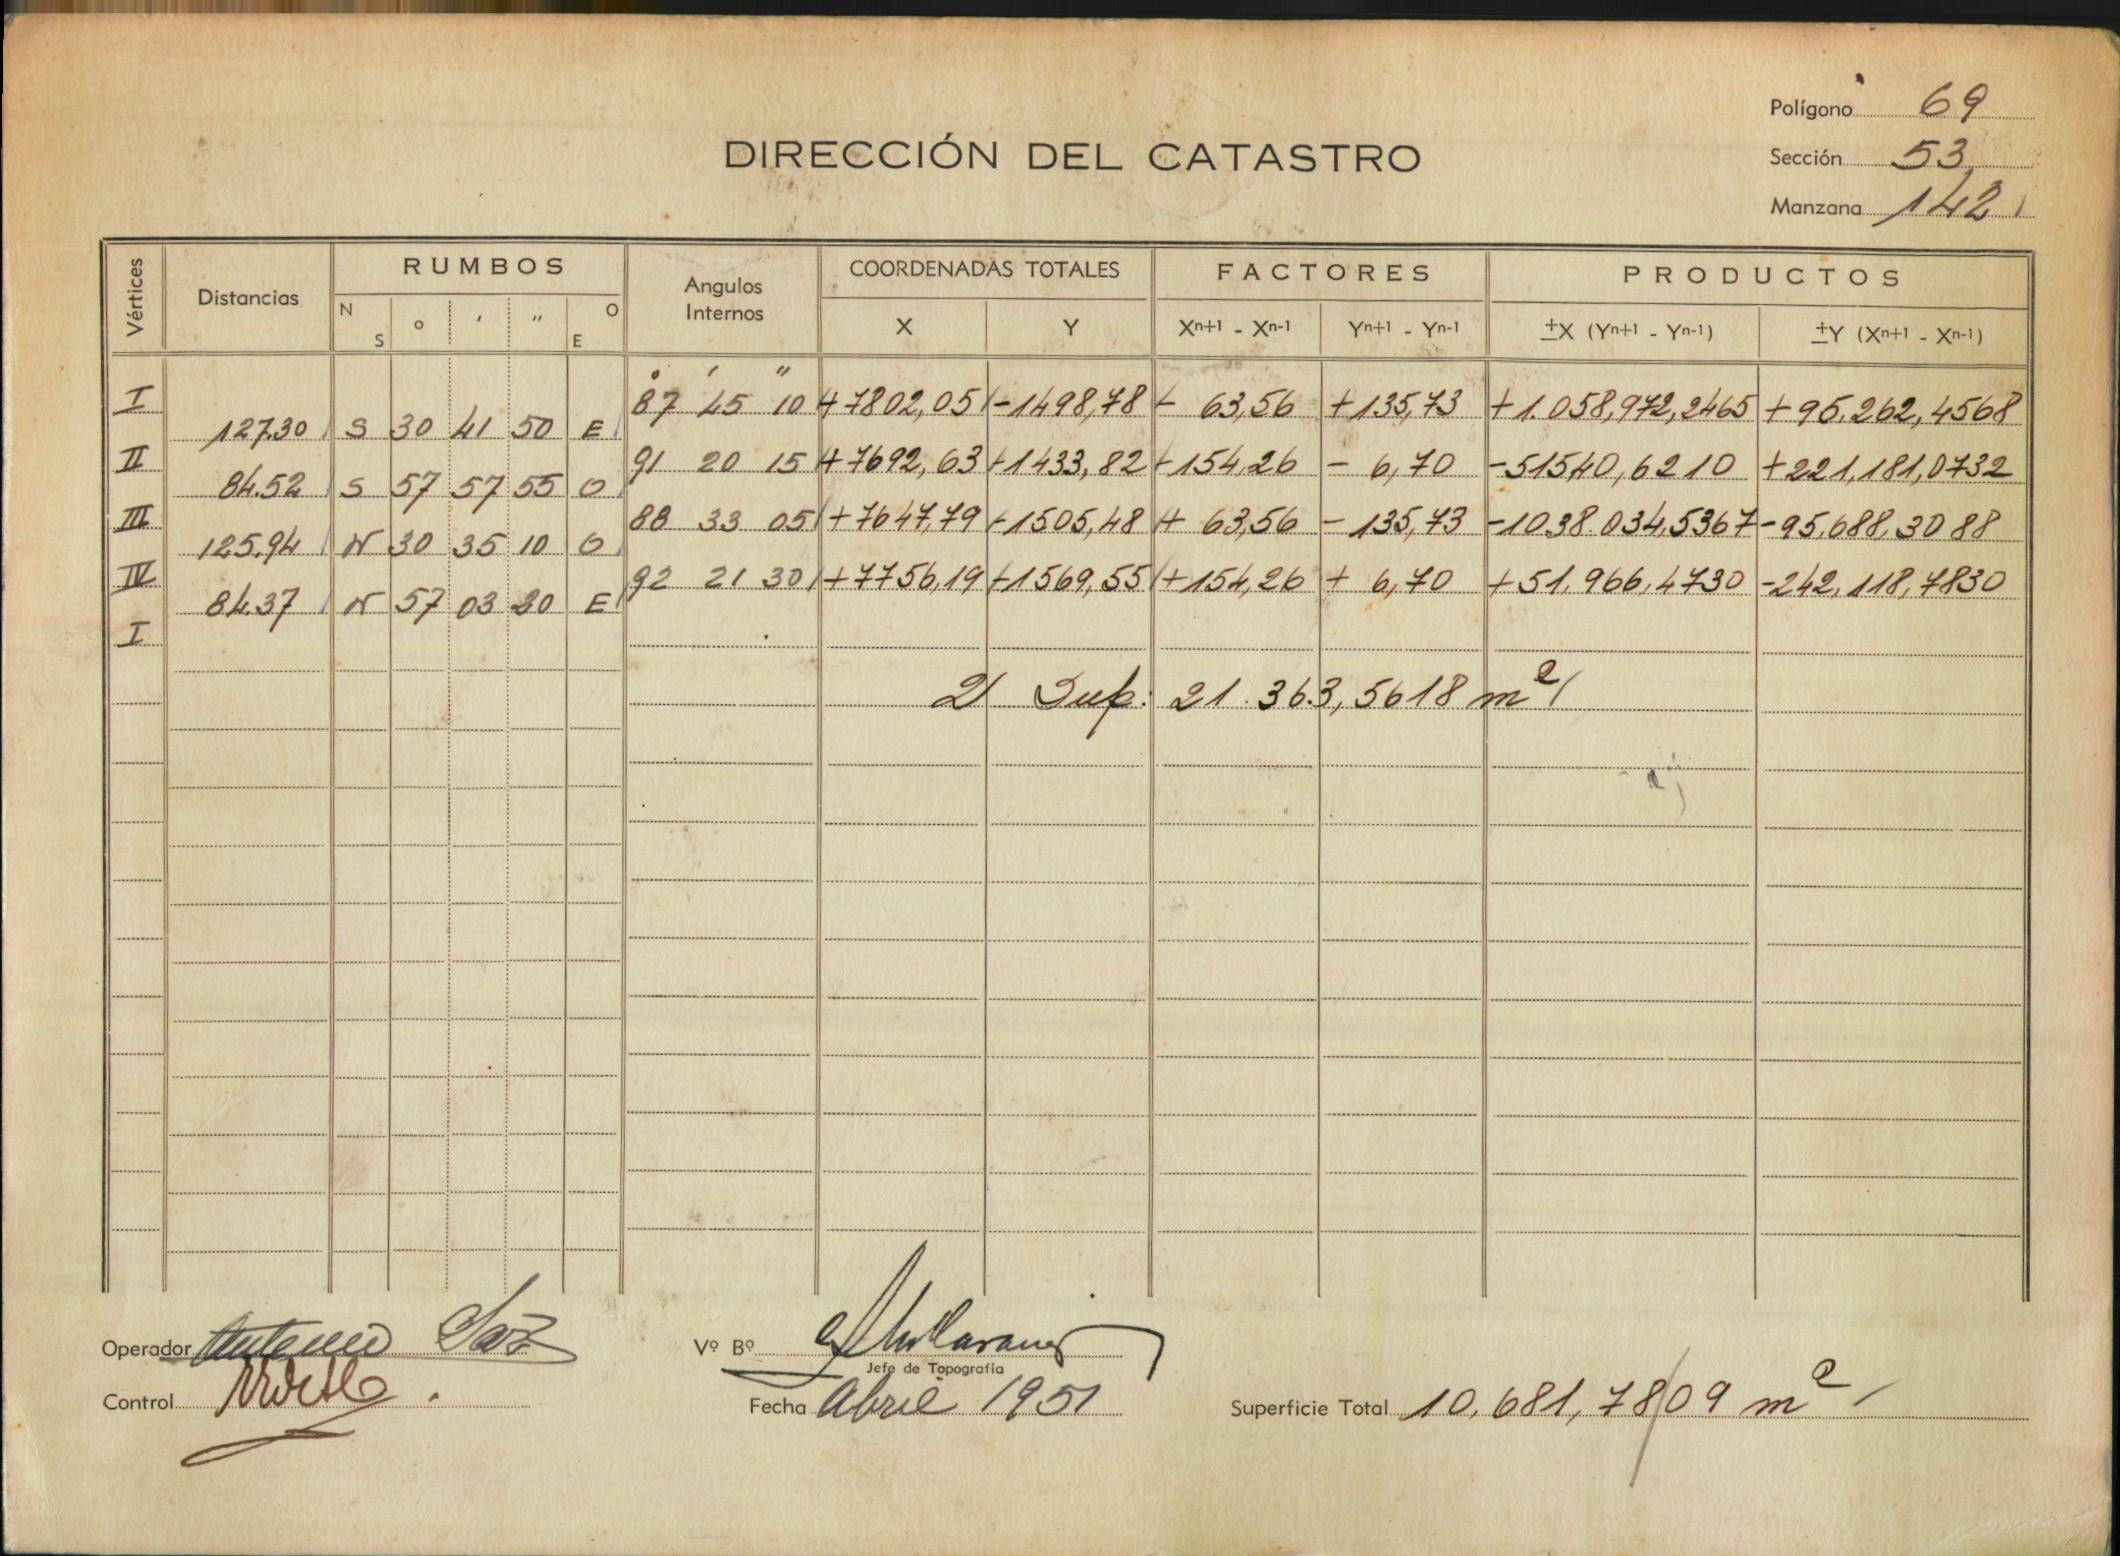 Polígono 69
DIRECCIÓN DEL CATASTRO
Sección 53
Manzana 142
Vértices Distancias RUMBOS Angulos Internos COORDENADAS TOTALES FACTORES PRODUCTOS
N S o ' " O E X Y Xn+1 - Xn-1 Yn+1 - Yn-1 ±X (Yn+1 - Yn-1) ±Y (Xn+1 - Xn-1)
° ' "
I 87 45 10 +7802,05 -1498,78 - 63,56 +135,73 +1.058,972,2465 +95.262,4568
127.30 S 30 41 50 E
II 91 20 15 +7692,63 -1433,82 -154,26 - 6,70 -51540,6210 +221,181,0732
84.52 S 57 57 55 O
III 88 33 05 +7647,79 -1505,48 + 63,56 - 135,73 -1038.034,5367 -95,688,3088
125.94 N 30 35 10 O
IV 92 21 30 +7756,19 -1569,55 +154,26 + 6,70 +51.966,4730 -242,118,7830
84.37 N 57 03 20 E
I
2 Sup: 21.363,5618 m2
Operador Antonio
Vº Bº
Jefe de Topografía
Control
Fecha Abril 1951
Superficie Total 10,681,7809 m2